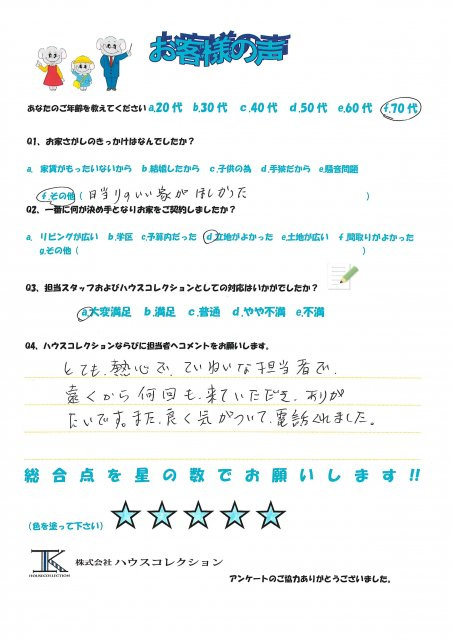 お客様の声
あなたのご年齢を教えてください a.20代 b.30代 c.40代 d.50代 e.60代 f.70代
Q1、お家さがしのきっかけはなんでしたか？
a. 家賃がもったいないから b.結婚したから c.子供の為 d.手狭だから e.騒音問題
f.その他（日当りのいい家がほしかった）
Q2、一番に何が決め手となりお家をご契約しましたか？
a. リビングが広い b.学区 c.予算内だった d.立地がよかった e.土地が広い f.間取りがよかった
g.その他（ ）
Q3、担当スタッフおよびハウスコレクションとしての対応はいかがでしたか？
a.大変満足 b.満足 c.普通 d.やや不満 e.不満
Q4、ハウスコレクションならびに担当者へコメントをお願いします。
とても、熱心で、ていねいな担当者で、
遠くから何回も、来ていただき、ありが
たいです。また、良く気がついて、電話くれました。
総合点を星の数でお願いします!!
（色を塗って下さい）
HOUSECOLLECTION
株式会社 ハウスコレクション
アンケートのご協力ありがとうございました。